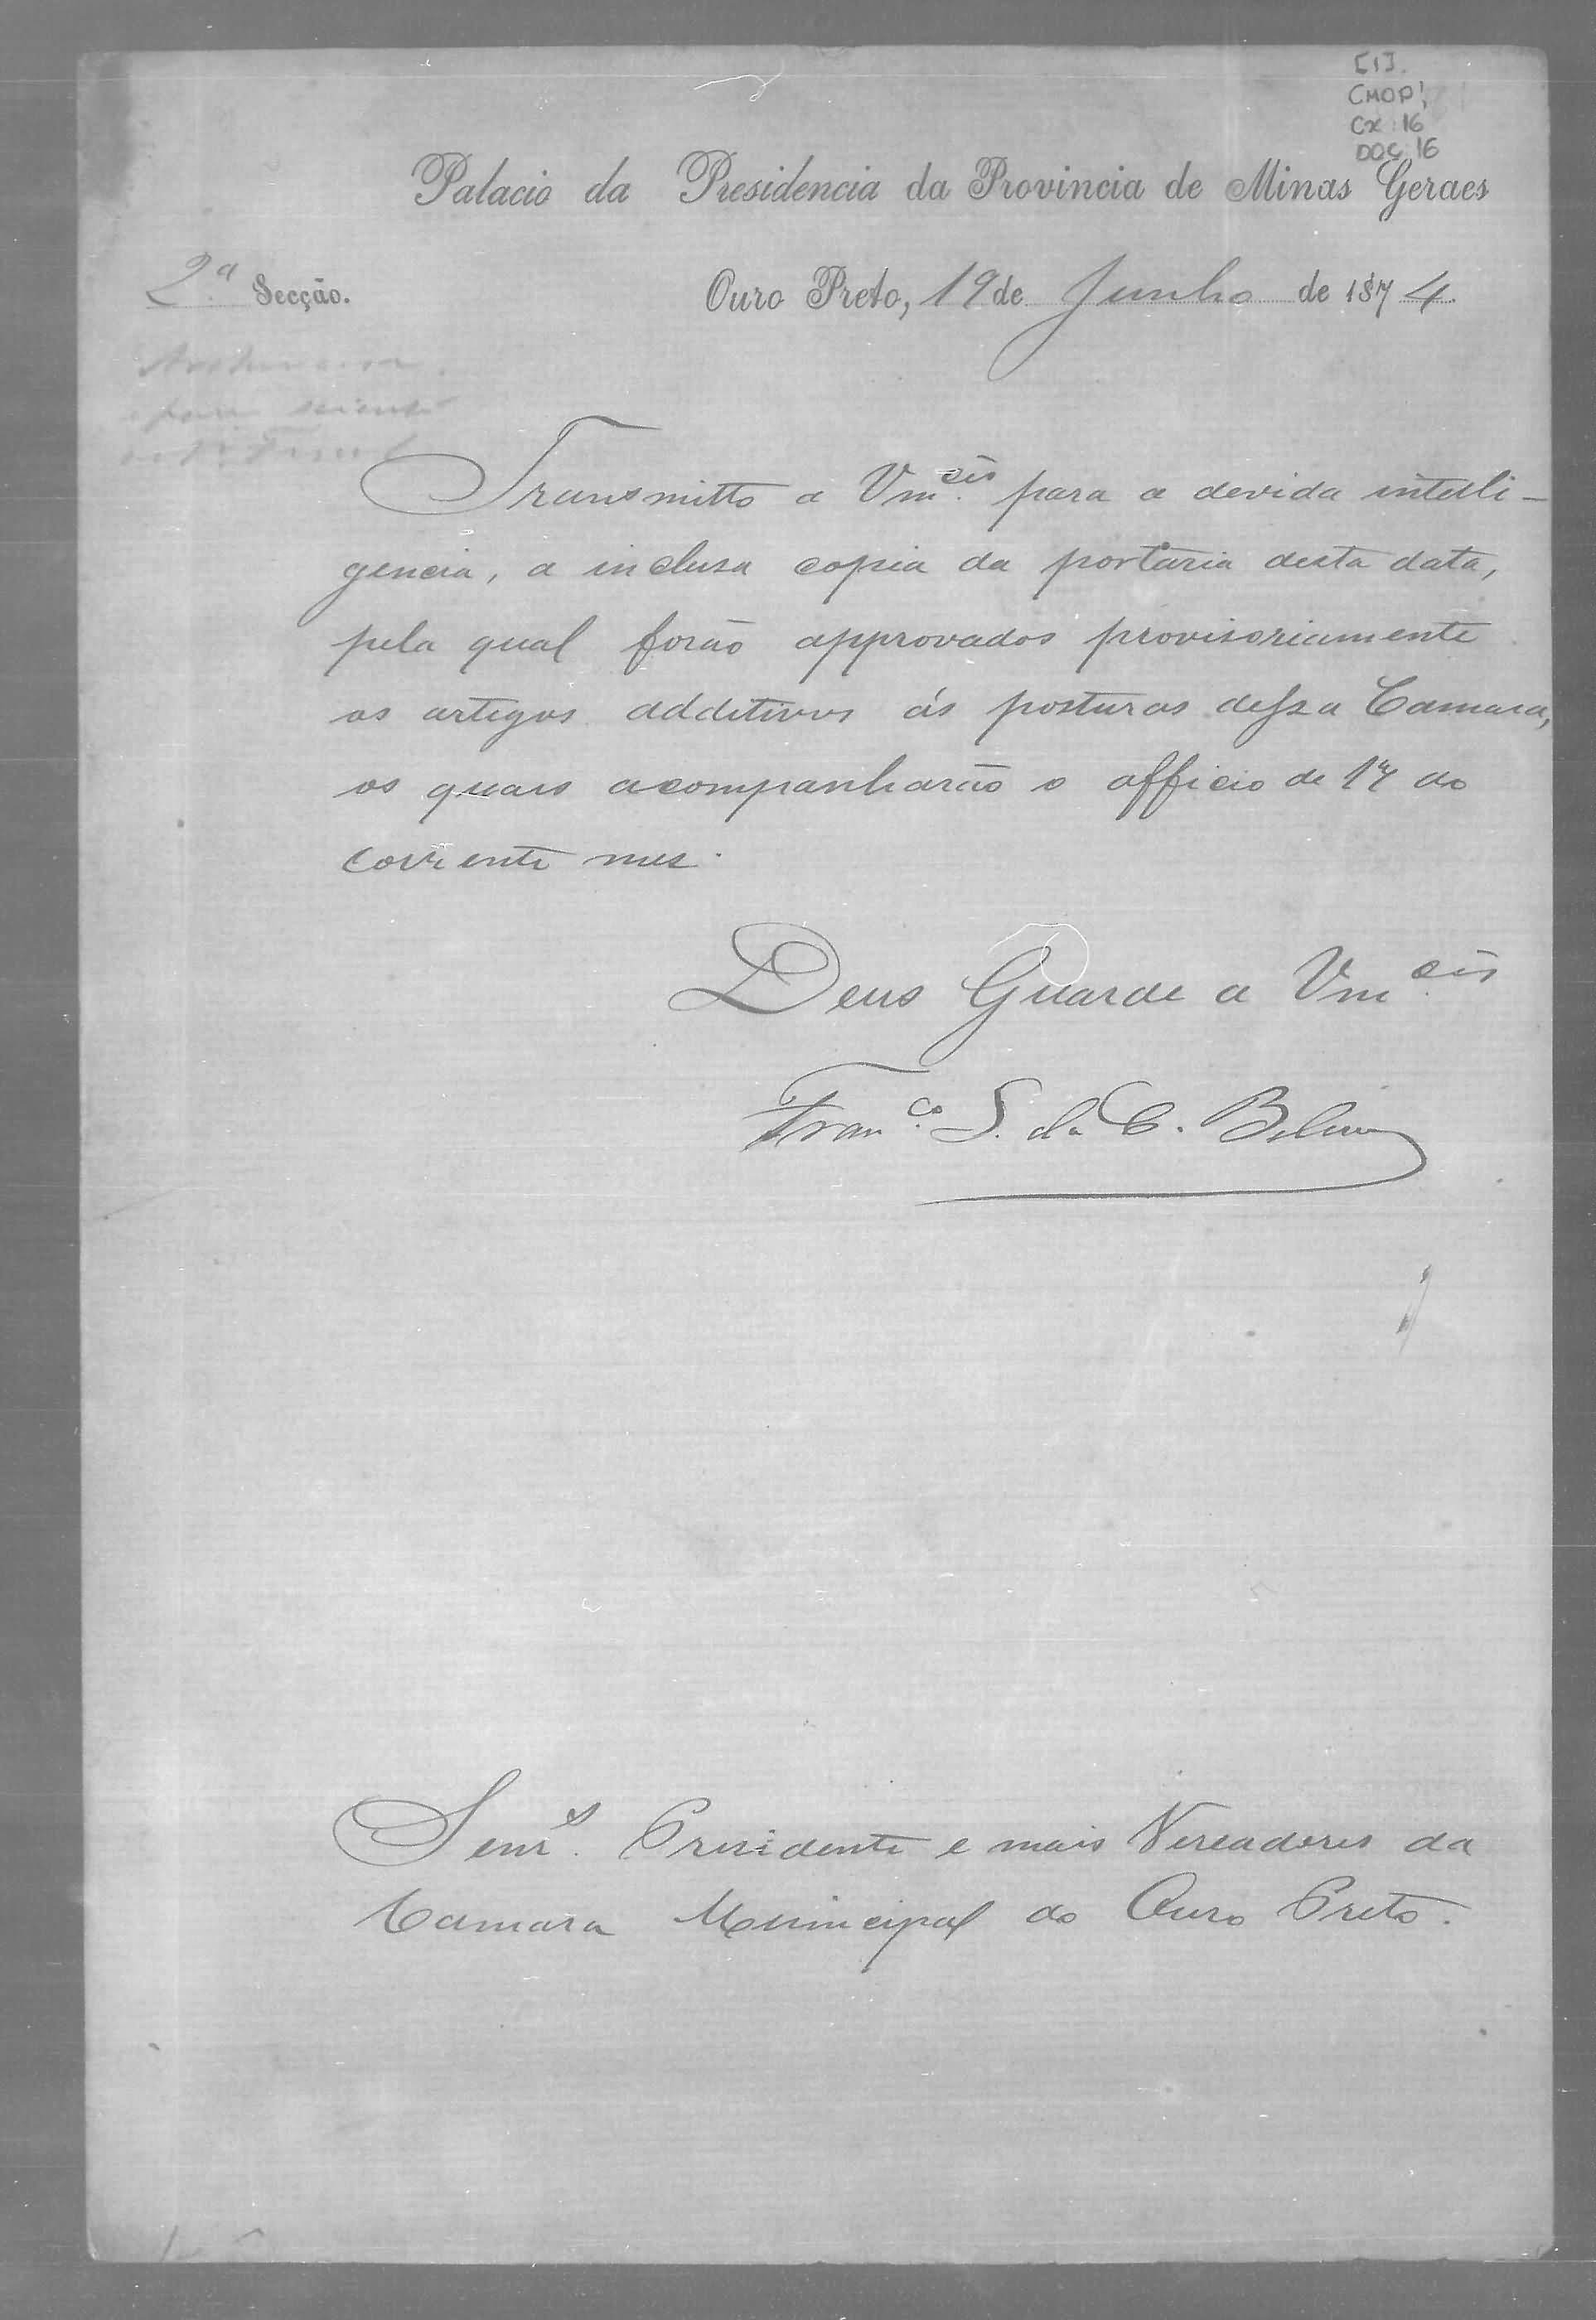 [1].
CMOP;
Cx: 16
DOC: 16
Palacio da Presidencia da Provincia de Minas Geraes
2.ª Secção.
Ouro Preto, 19 de Junho de 1874.
Transmitto a Vm.ces para a devida intelli-
gencia, a inclusa copia da portaria desta data,
pela qual forão approvados provisoriamente
os artigos additivos ás posturas dessa Camara,
os quais acompanharão o officio de 17 do
corrente mez.
Deus Guarde a Vm.ces
Fran.co S. da C. Belem
Senr.s Presidente e mais Vereadores da
Camara Municipal do Ouro Preto.